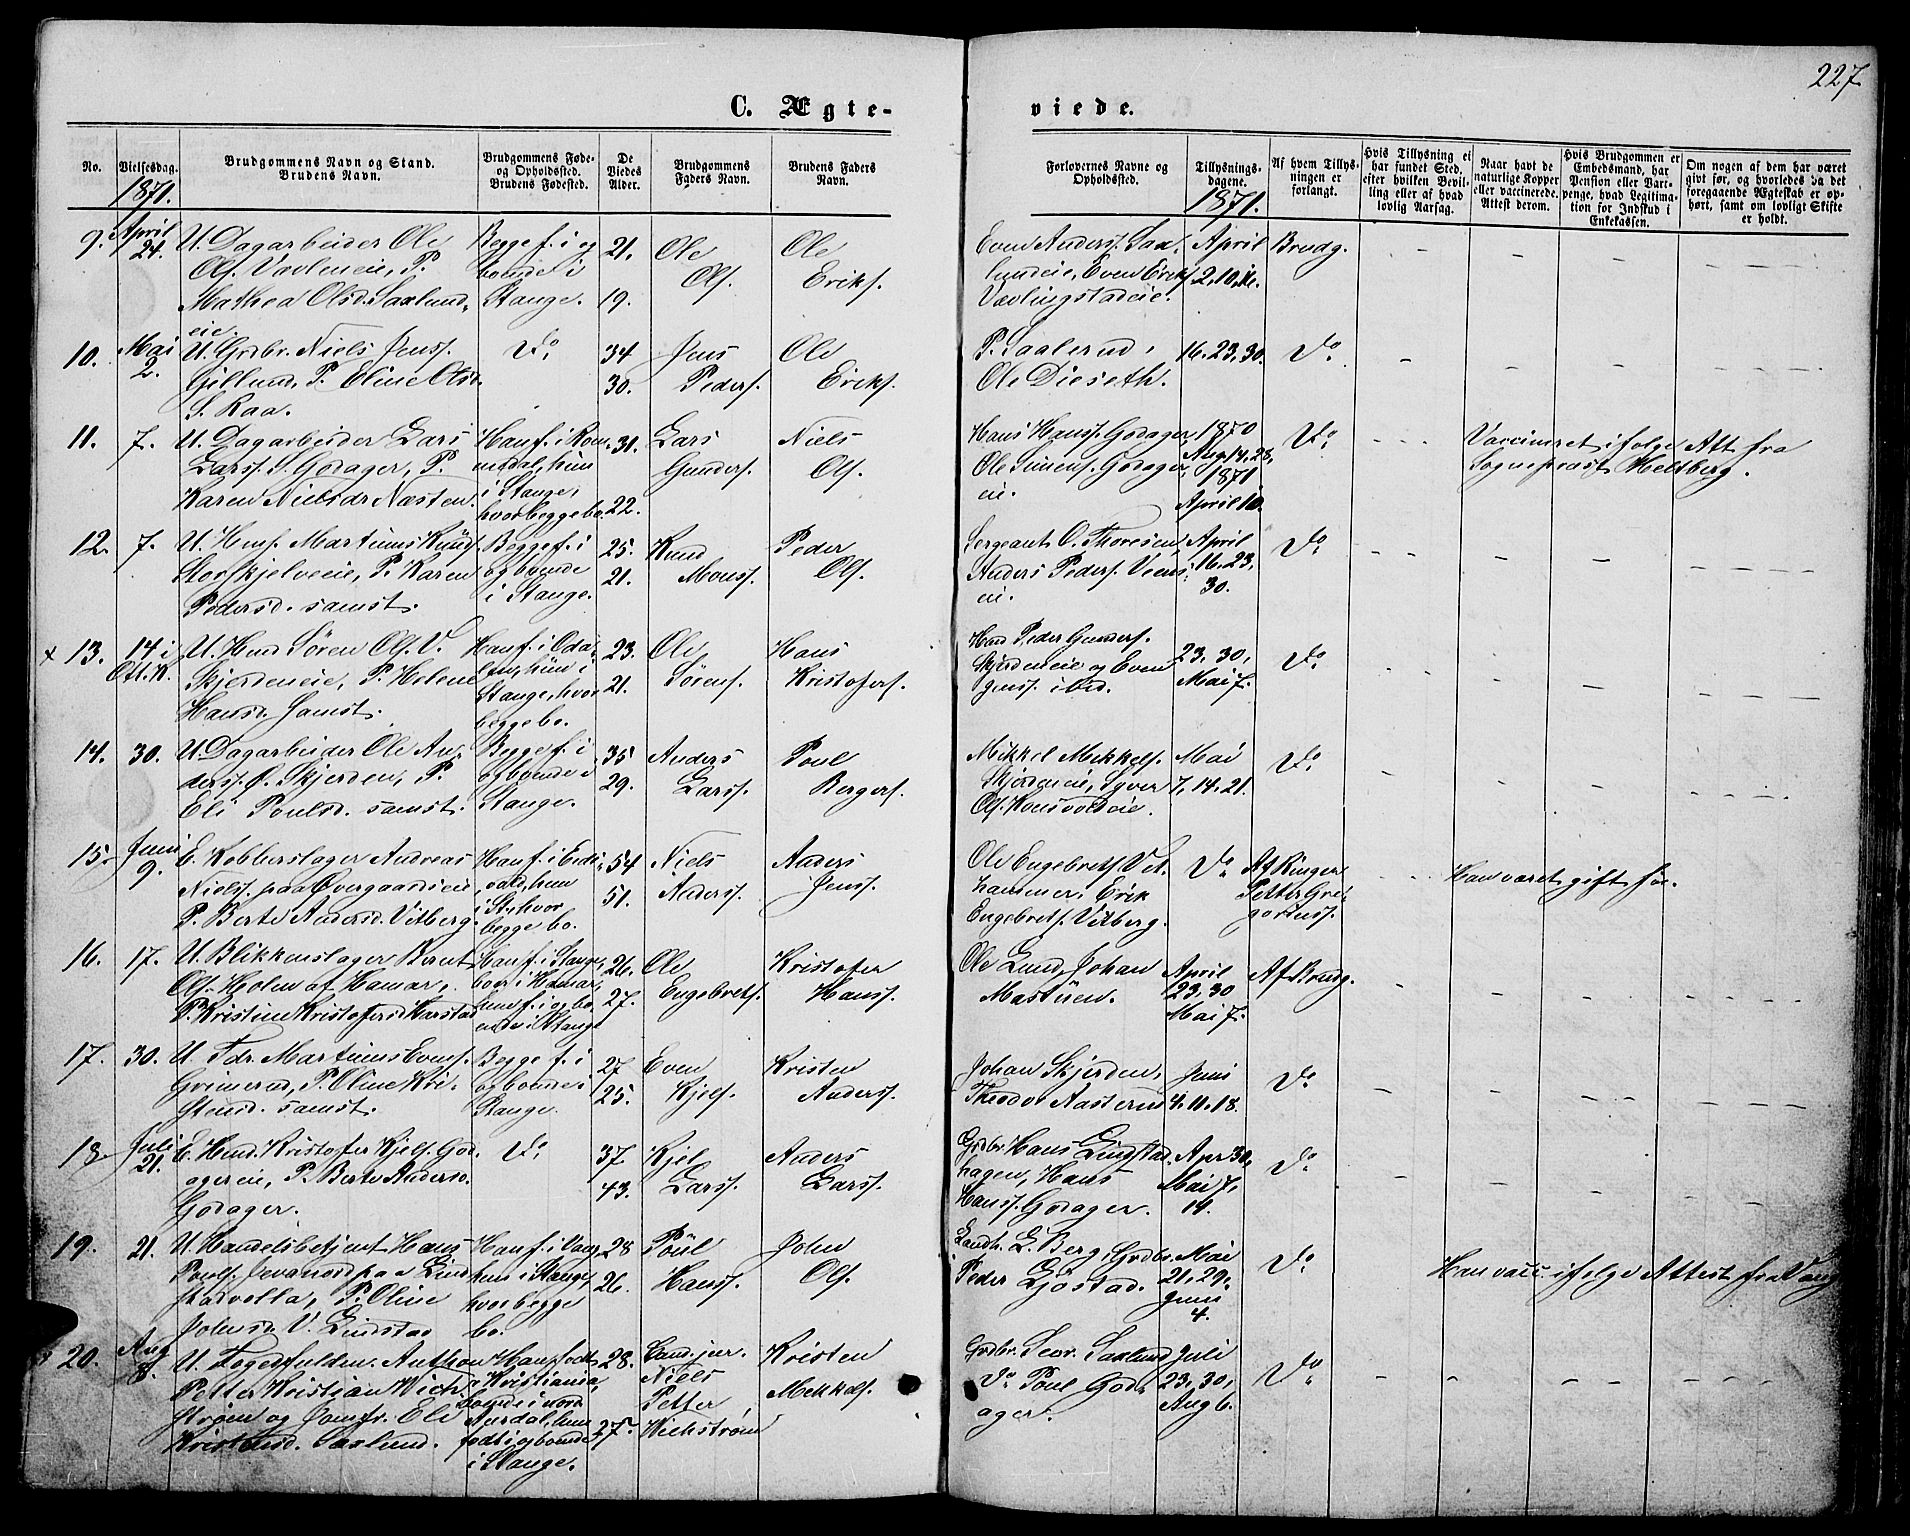 227.
C. Ægte-
viede.
No.
Vielsesdag.
1871.
Brudgommens Navn og Stand.
Brudens Navn.
Brudgommens Føde-
og Opholdssted.
Brudens Fødested.
De
Viedes
Alder.
Brudgommens
Faders Navn.
Brudens Faders
Navn.
Forlovernes Navne og
Opholdssted.
Tillysnings-
dagene.
1871.
Af hvem Tillys-
ningen er
forlangt.
Hvis Tillysning ei
har fundet Sted,
efter hvilken Bevil-
ling eller af hvad
lovlig Aarsag.
Naar havt de
naturlige Kopper
eller vaccinerede.
Attest derom.
Hvis Brudgommen er
Embedsmand, har
Pension eller Vart-
penge, hvad Legitima-
tion for Indskud i
Enkekassen.
Om nogen af dem har været
gift før, og hvorledes da det
foregaaende Ægteskab er op-
hørt, samt om lovligt Skifte
er holdt.
9. April 24.
U. Dagarbeider Ole
Ols. Vævleneie, P.
Mathea Olsd. Saxlund,
eie.
Begge f. i og
boende i
Stange.
21.
19.
Ole
Ols.
Ole
Eriks.
Even Anders. Sax,
lundeie, Even Eriks.
Vævlingstadeie.
April
2, 10, 16.
Brudg.
10. Mai 2.
U. Grdbr. Niels Jens.
Gillund, P. Eline Olsd.
S. Raa.
Do
34
30.
Jens
Peders.
Ole
Eriks.
P. Saalerud,
Ole Dieseth.
16. 23, 30.
Do
11. 7.
U. Dagarbeider Lars
Larss. S. Godager, P.
Karen Nielsdr Næsten.
Han f. i Rom,
medal, hun
i Stange,
hvor begge bo.
31.
22.
Lars
Gunders.
Niels
Ols.
Hans Hanss. Godager,
Ole Simens. Godager,
eie.
1870
Aug. 14, 28,
1871
April 10.
Do
Vaccineret ifølge Att. fra
Sognepræst Heltberg.
12. 7.
U. Hmf. Martinus Knuds.
Storskjelveie, P. Karen
Pedersd. samst.
Begge f. i
og boende
i Stange.
25.
21.
Knud
Mons.
Peder
Ols.
Sergeant O. Thoresen,
Anders Peders. Veens,
eie.
April
16. 23,
30.
Do
x 13. 14 i
Ott. K.
U. Hmd Søren Ols. V.
Skjerdeneie, P. Helene
Hansd. samst.
Han f. i Oda,
len, hun i
Stange, hvor
begge bo.
23.
21.
Ole
Sørens.
Hans
Kristofers.
Hmd Peder Gunders.
Skjerdeneie og Even
Jenss. ibid.
23, 30,
Mai 7.
Do
14. 30.
U. Dagarbeider Ole An,
derss. Ø. Skjerden, P.
Eli Poulsd. samst.
Begge f. i
og boende i
Stange.
35
29.
Anders
Larss.
Poul
Bergers.
Mikkel Mikkels.
Skjerdeneie, Syver
Ols. Honsvoldeie.
Mai
7, 14, 21.
Do
15. Juni 9.
E. Kobberslager Andreas
Niels. paa Overgaardseie,
P. Berte Andersd. Vitberg.
Han f. i Eids,
vold, hun
i St., hvor
begge bo.
54
51.
Niels
Anderss.
Anders
Jenss.
Ole Engebrets. Vet,
hammer, Erik
Engebrets. Vitberg.
Do
Af Ringer
Petter Gre,
gorius.
Han været gift før.
16. 17.
U. Blikkenslager Bernt
Ols. Holen af Hamar,
P. Kristine Kristofersd Harstad
Han f. i Stange,
boer i Hamar,
hun f. i og bo,
ende i Stange
26.
27.
Ole
Engebrets.
Kristofer
Hanss.
Ole Lund, Johan
Mastuen.
April
23. 30
Mai 7.
Af Brudg.
17. 30.
U. Fdr. Martinus Evens.
Grimerud, P. Oline Kri,
stensd. samst.
Begge f. i
og boende i
Stange.
27
25.
Even
Kjels.
Kristen
Anderss.
Johan Skjerden,
Theodor Aasterud
Juni
4. 11. 18.
Do
18. Juli 21.
E. Hmd. Kristofer Kjels. God,
agereie, P. Berte Andersd.
Godager.
Do
37
43.
Kjel
Larss.
Anders
Larss.
Grdbr. Hans Lindstad,
hagen, Hans
Hanss. Godager.
Apr 30,
Mai 7,
14.
Do
19. 21.
U. Handelsbetjent Hans
Pouls. Jevanord paa Lind
stadvolla, P. Oline
Johnsd. V. Lindstad
Han f. i Vang,
hun i Stange,
hvor begge
bo.
28
26.
Poul
Hanss.
John
Ols.
Landh. L. Berg, Grdbr.
Peder Gjøstad.
Mai
21, 29,
Juni
4.
Do
Han vacc. ifølge Attest fra Vang
20. Aug 8.
U. Fogedfuldm. Anthon
Petter Kristian Wich,
strøm og Jomfr. Eli
Kristensd. Saxlund.
Han født
i Kristiania,
boende i Nord
Aurdal, hun
født i og boende
i Stange.
28.
27.
Cand. jur.
Niels
Petter
Wichstrøm
Kristen
Mikkels.
Grdbr. Sever. Saxlund
Do Poul God,
ager.
Juli
23, 30,
Aug 6.
Do